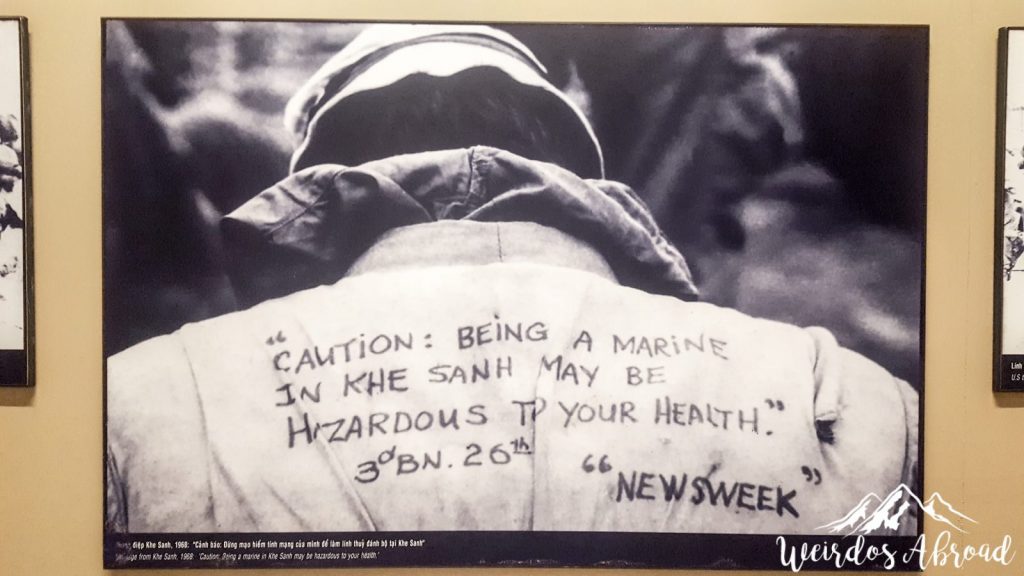 "CAUTION: BEING A MARINE
IN KHE SANH MAY BE
HAZARDOUS TO YOUR HEALTH."
3d BN. 26th
"NEWSWEEK"
điệp Khe Sanh, 1968: "Cảnh báo: Đừng mạo hiểm tính mạng của mình để làm lính thuỷ đánh bộ tại Khe Sanh"
from Khe Sanh, 1968: 'Caution: Being a marine in Khe Sanh may be hazardous to your health.'
Weirdos Abroad
Lính
U.S